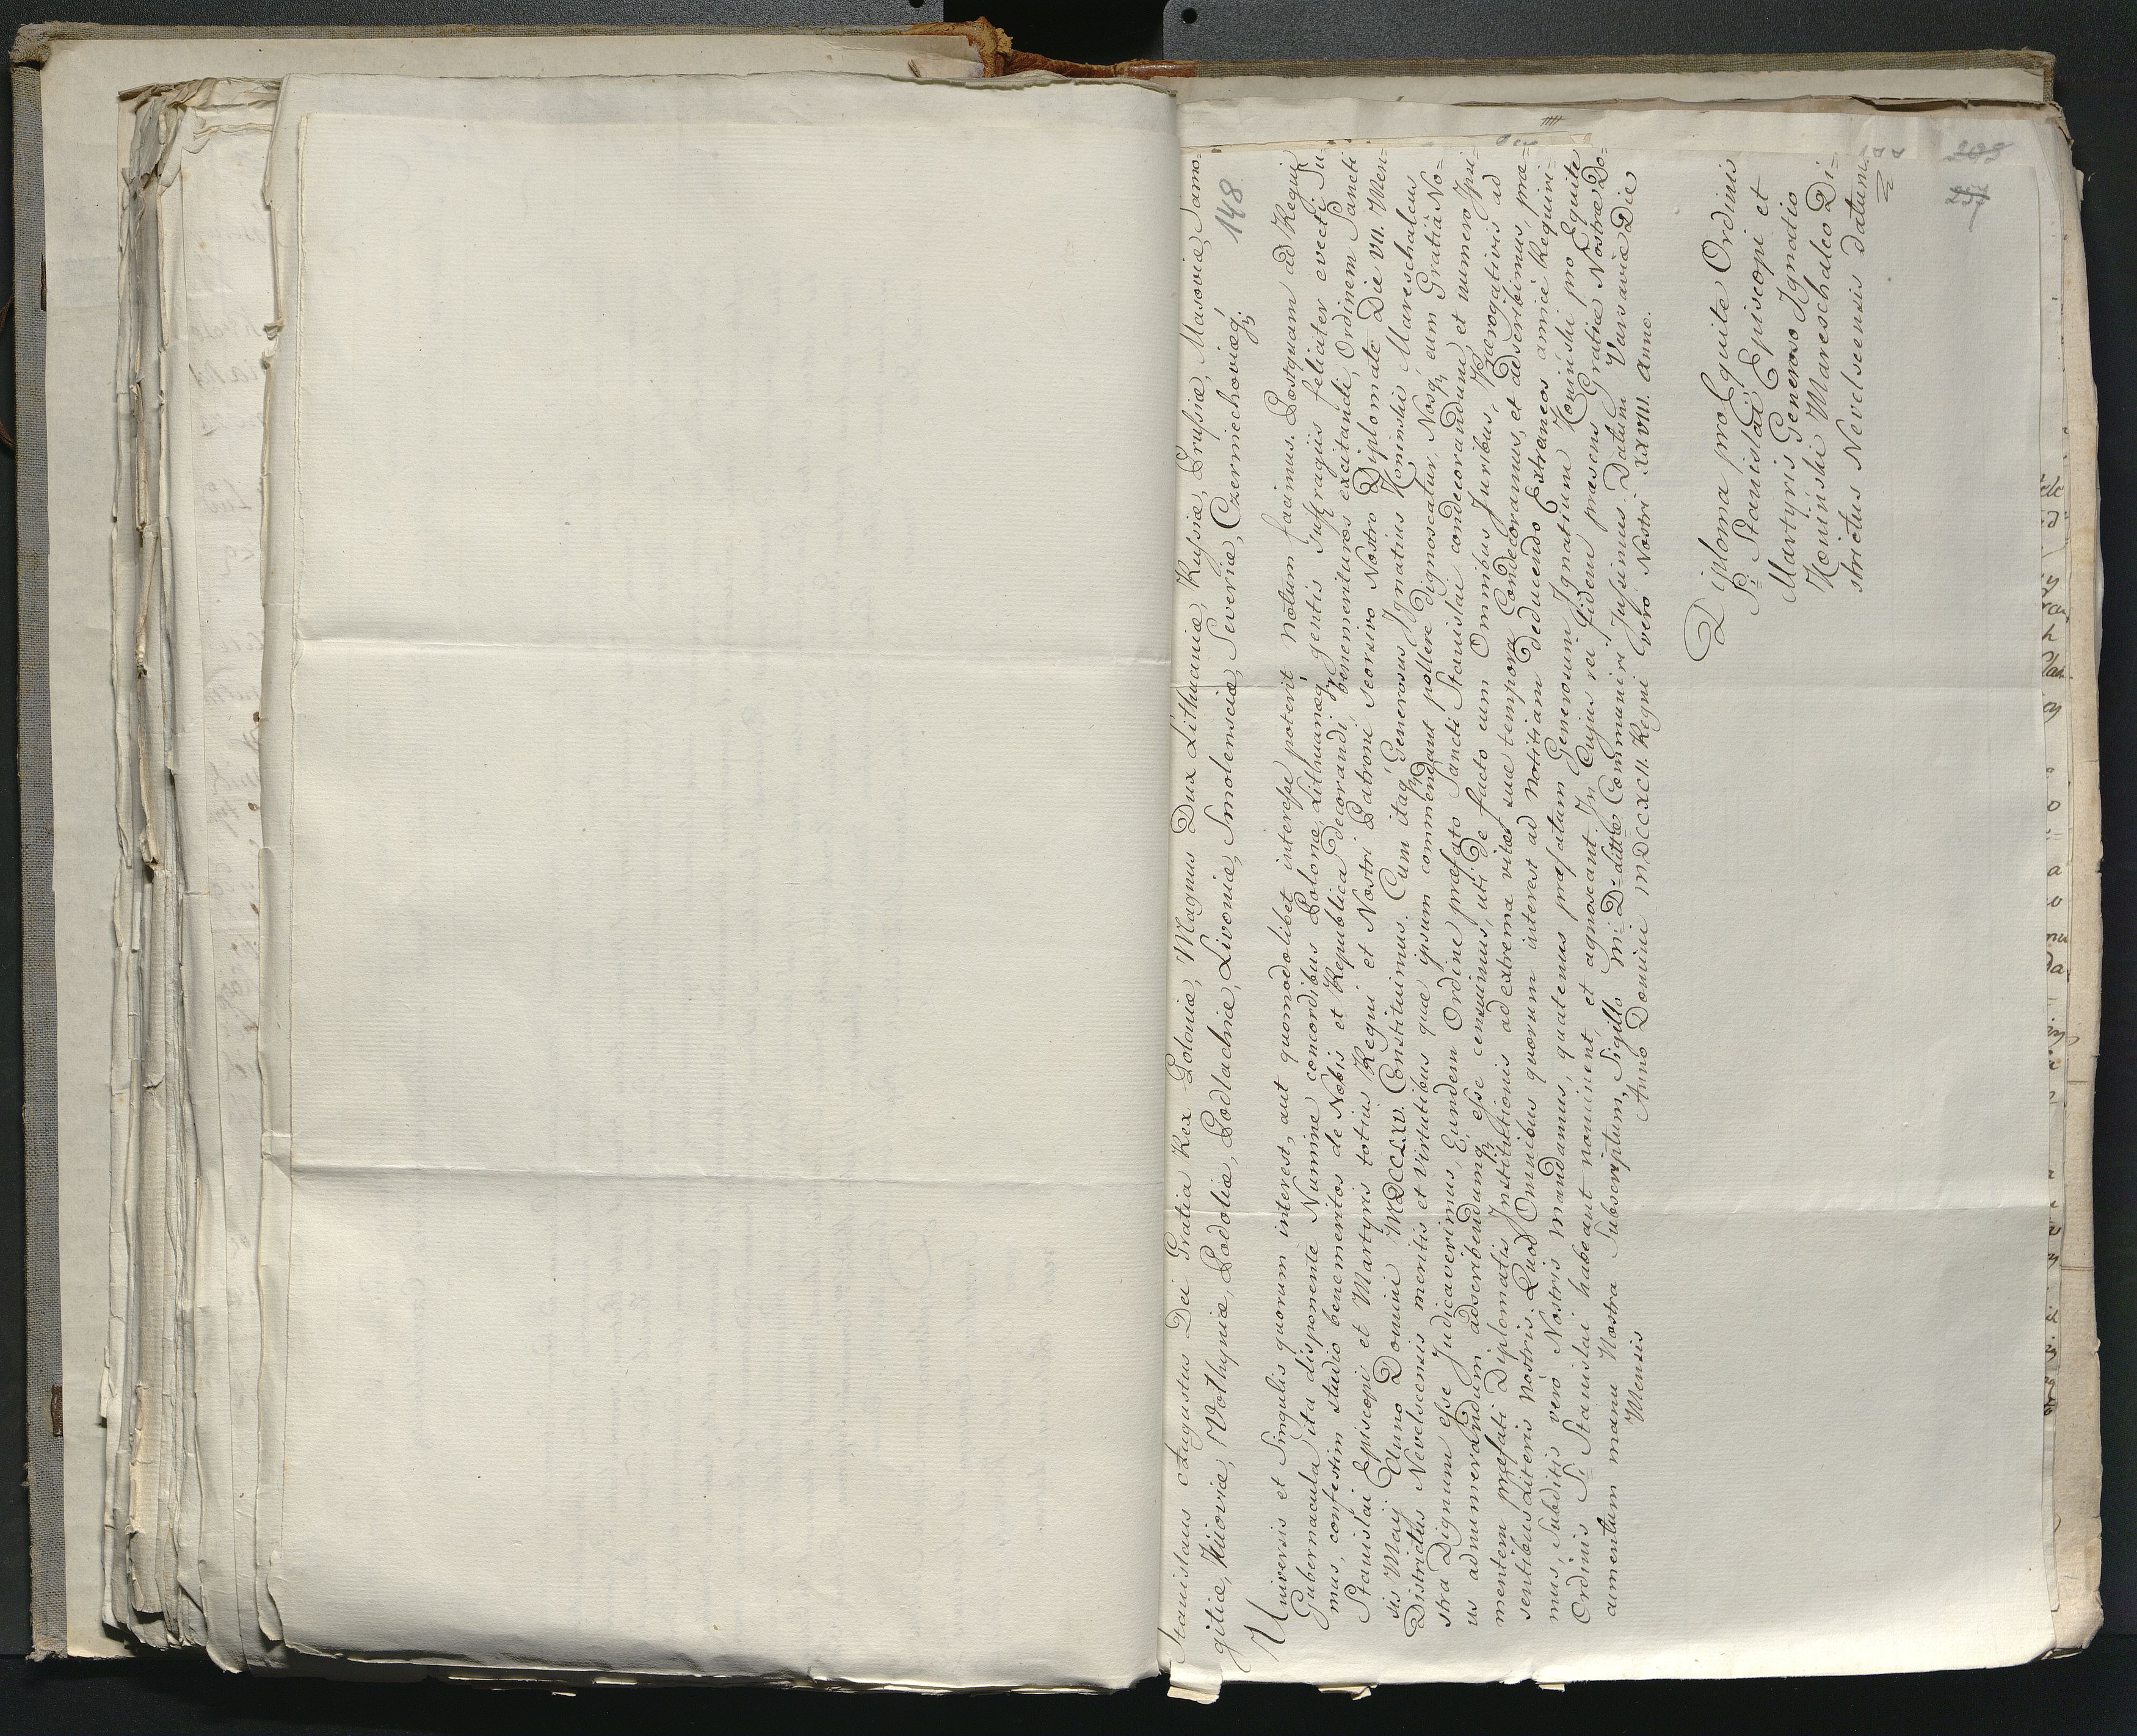 Stanislaus Augustus Dei Gratia Rex Poloniæ, Magnus Dux Lithuaniæ, Russiæ, Prussiæ, Masoviæ, Samo=
gitiæ, Kiioviæ, Volhyniæ, Podoliæ, Podlachiæ, Livoniæ, Smolensciæ, Severiæ, Czerniechoviæq́;
148
Universis et Singulis quorum interest, aut quomodolibet interesse poterit Notum facimus. Postquam ad Regni
Gubernacula ita disponente Numine concordibus Polonæ, Lithuanæq́; gentis suffragiis feliciter evecti Su=
mus, confestim studio benemeritos de Nobis et Republica decorandi, benemerituros excitandi, Ordinem Sancti
Stanislai Episcopi et Martyris totius Regni et Nostri Patroni seorsivo Nostro Diplomate Die VII. Men=
sis Maij Anno Domini MDCCLXV. Constituimus. Cum itaq́; Generosus Ignatius Koninski Mareschalcus
Districtus Nevelscensis meritis et Virtutibus quæ ipsum commendant pollere dignoscatur, Nosq́; eum Gratiâ No=
stra Dignum esse Judicaverimus, Eundem Ordine præfato Sancti Stanislai condecorandum, et numero Ipsi=
us adnumerandum adscribendumq́; esse censuimus, uti de facto eum Omnibus Juribus, Prærogativis ad
mentem præfati Diplomatis Institutionis ad extrema vitæ suæ tempora Condecoramus, et adscribimus, præ=
sentibus Literis Nostris. Quod Omnibus quorum interest ad Notitiam deducendo Extraneos amicè Requiri=
mus, Subditis verò Nostris mandamus, quatenus præfatum Generosum Ignatium Koninski pro Equite
Ordinis S͟i Stanislai habeant nominent et agnoscant. In Cujus rei fidem præsens Gratiæ Nostræ Do=
cumentum manu Nostra Subscriptum, Sigillo M: D: Litt͟æ Communiri Jussimus. Datum Varsaviæ Die
Mensis Anno Domini MDCCXCII. Regni verò Nostri XXVIII. Anno.
Diploma pro Equite Ordinis
S͟i Stanislai Episcopi et
Martyris Generoso Ignatio
Koninski Mareschalco Di=
strictus Nevelscensis datum.